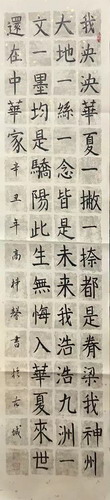 我泱泱華夏一撇一捺都是脊梁我神州
大地一絲一念皆是未来我浩浩九洲一
文一墨均是驕陽此生無悔入華夏來世
還在中華家 辛丑年高梓馨書於古城